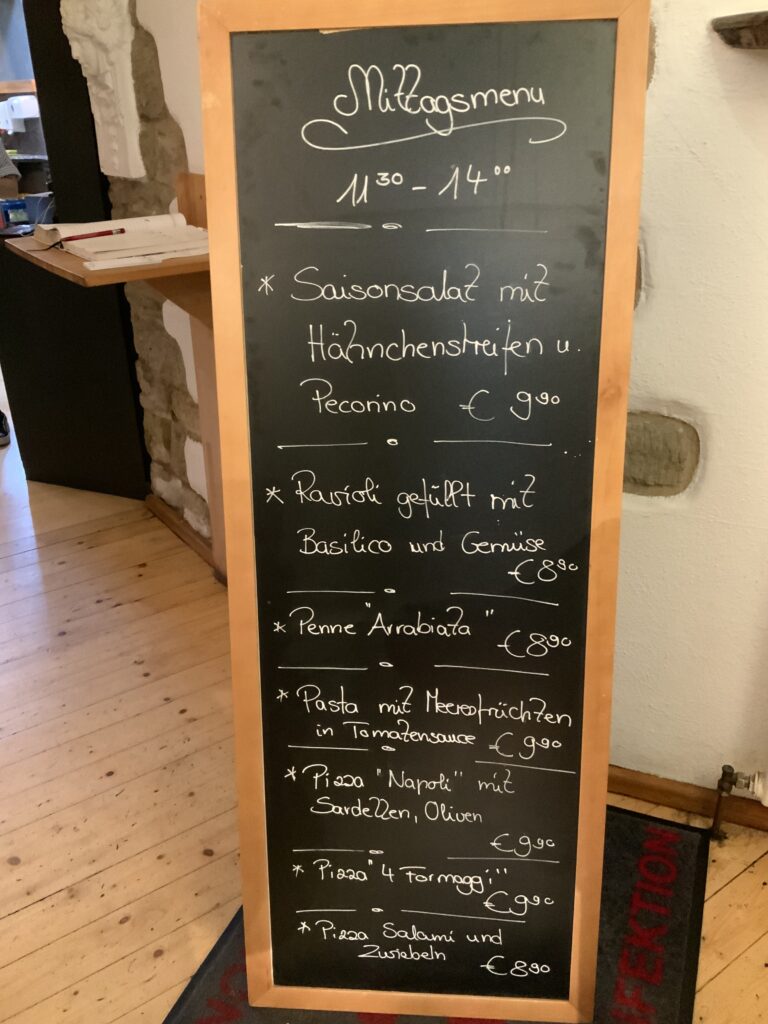 Mittagsmenu
11³⁰ - 14⁰⁰
* Saisonsalat mit
Hähnchenstreifen u.
Pecorino € 9⁹⁰
* Ravioli gefüllt mit
Basilico und Gemüse
€8⁹⁰
* Penne "Arrabiata" €8⁹⁰
* Pasta mit Meeresfrüchten
in Tomatensauce € 9⁹⁰
* Pizza "Napoli" mit
Sardellen, Oliven
€9⁹⁰
* Pizza "4 Formaggi"
€9⁹⁰
* Pizza Salami und
Zwiebeln €8⁹⁰